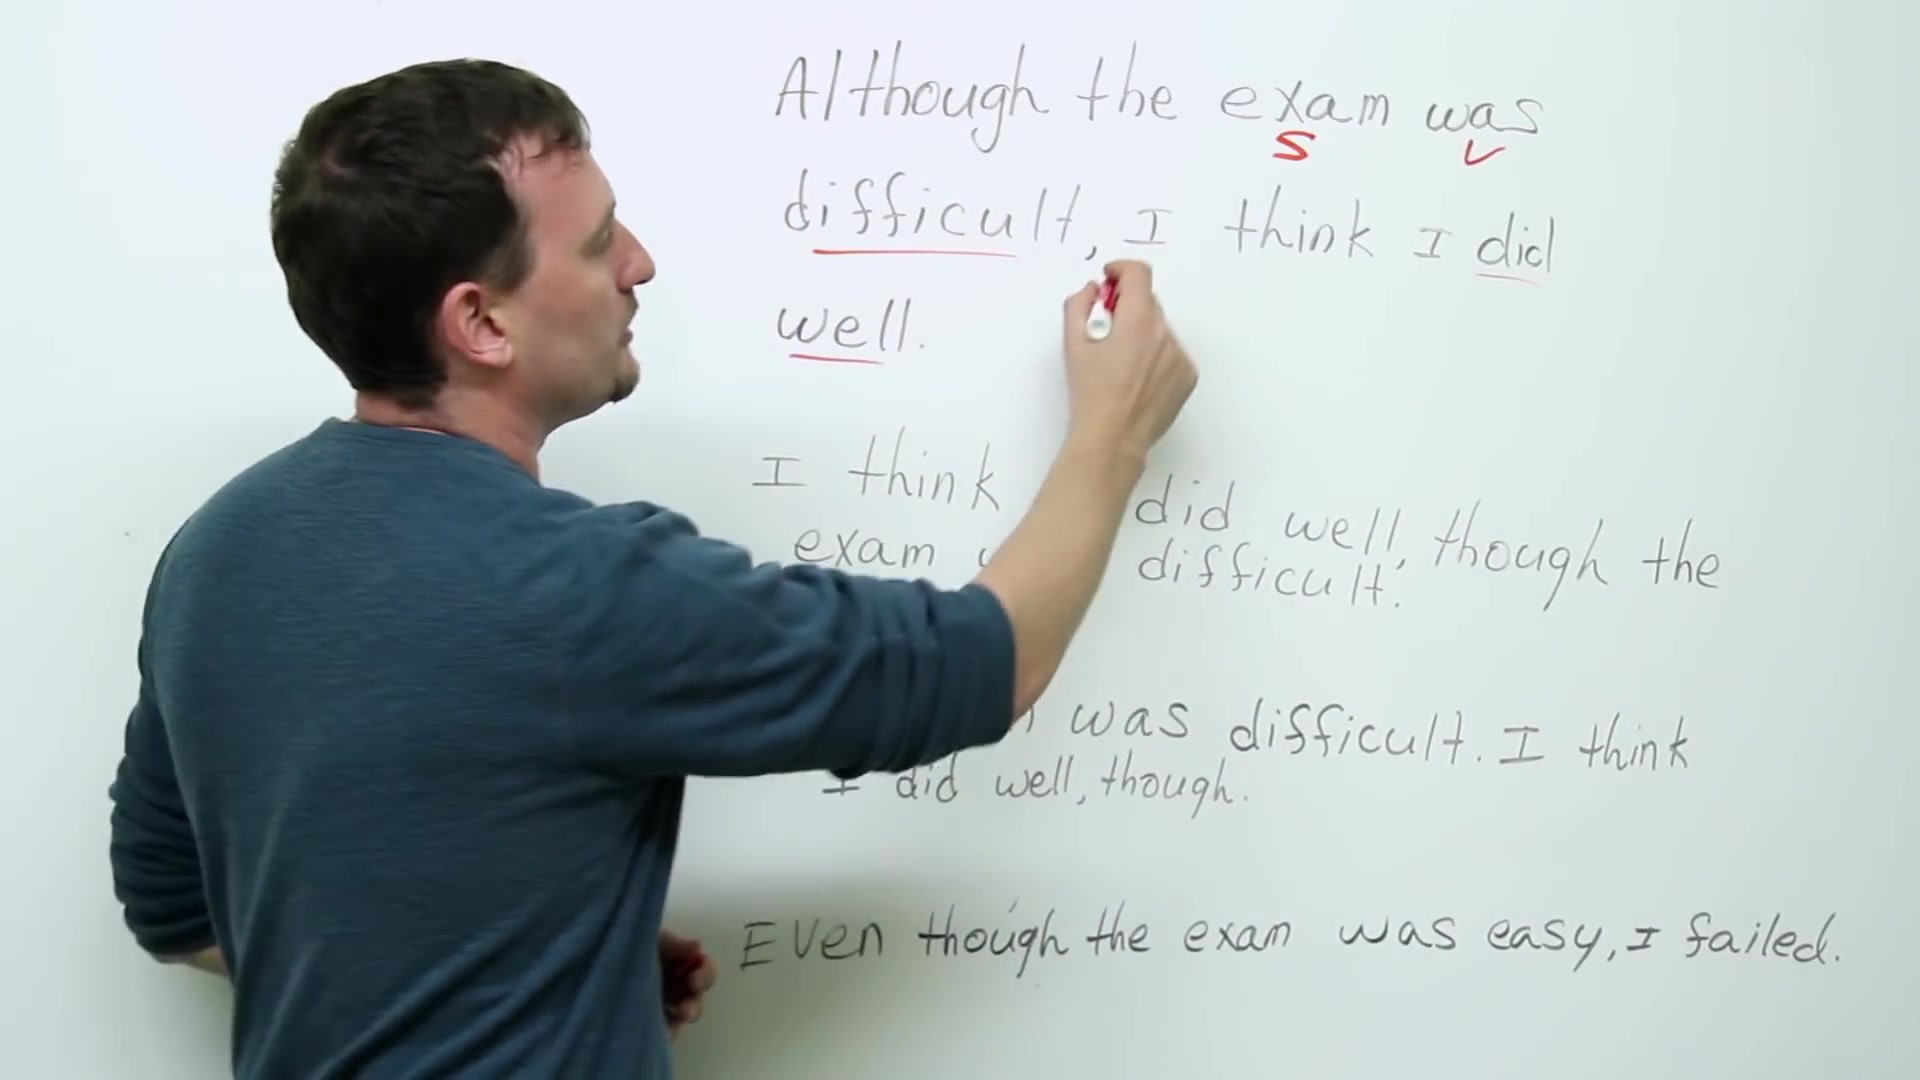 Although the exam was
S V
difficult, I think I did
well.
I think did well, though the
exam difficult.
was difficult. I think
I did well, though.
Even though the exam was easy, I failed.